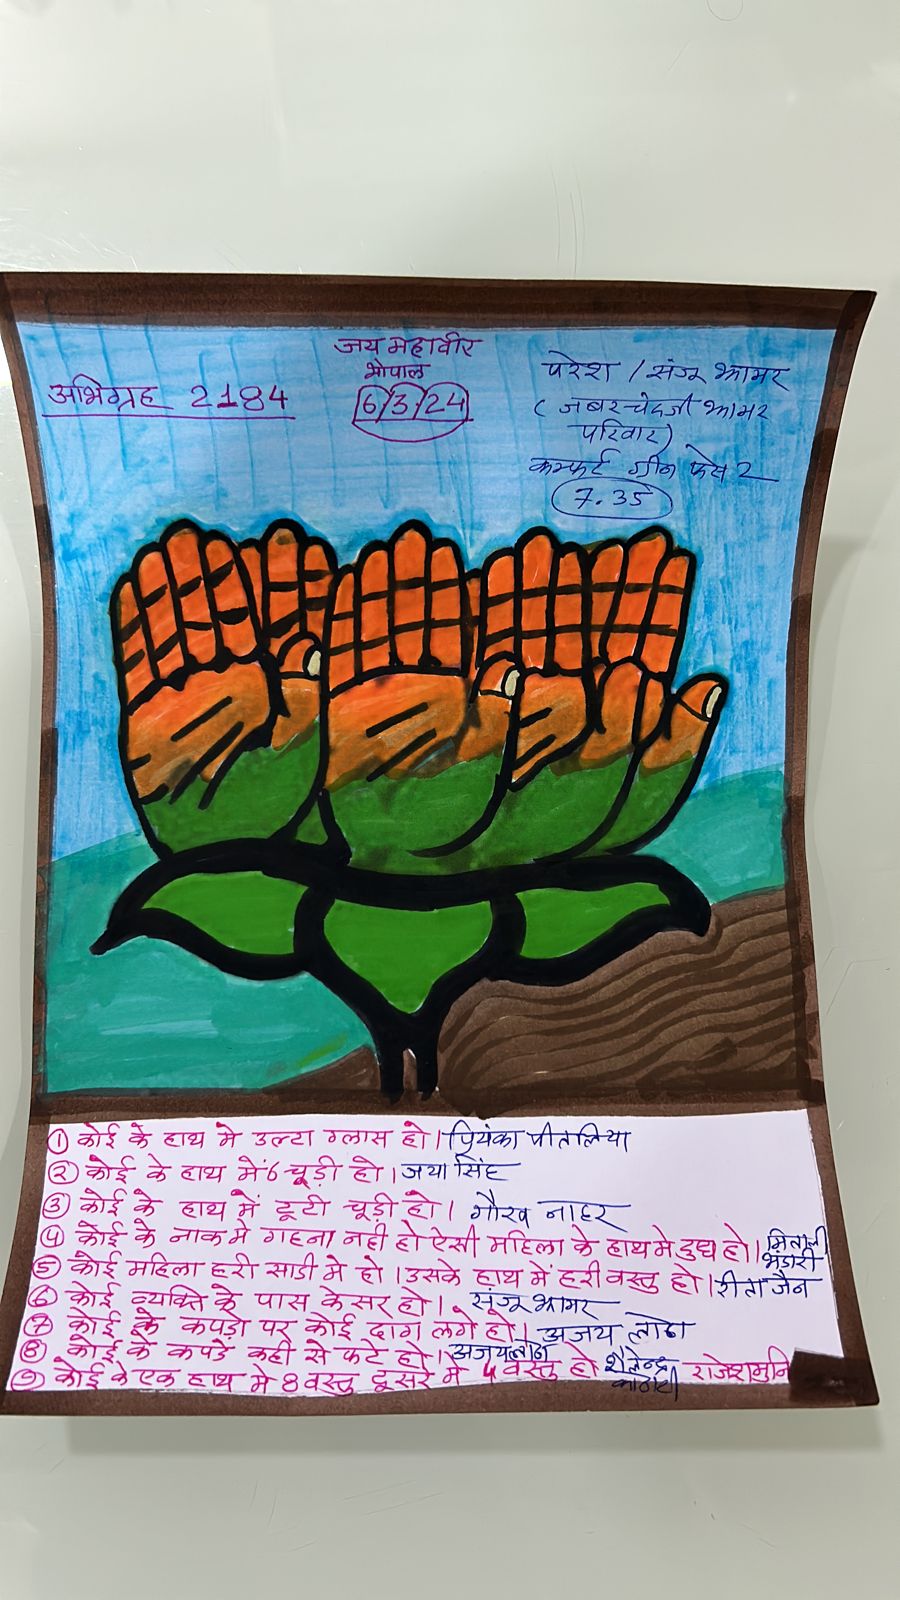 जय महावीर
भोपाल
6/3/24
अभिग्रह 2184
परेश / संजू झामर
(जबरचंदजी झामर
परिवार)
कम्फर्ट ग्रीन फेस 2
7.35
① कोई के हाथ मे उल्टा ग्लास हो। प्रियंका पीतलिया
② कोई के हाथ में 6 चूड़ी हो। जया सिंह
③ कोई के हाथ में टूटी चूड़ी हो। गौरव नाहर
④ कोई के नाक मे गहना नही हो ऐसी महिला के हाथ मे दुध हो। मिताली भंडारी
⑤ कोई महिला हरी साडी मे हो। उसके हाथ में हरी वस्तु हो। रीता जैन
⑥ कोई व्यक्ति के पास केसर हो। संजू झामर
⑦ कोई के कपड़ो पर कोई दाग लगे हो। अजय लोढा
⑧ कोई के कपडे कही से फटे हो। अजय लोढा
⑨ कोई के एक हाथ मे 8 वस्तु दूसरे मे 4 वस्तु हो शैलेन्द्र राजेशमुनि